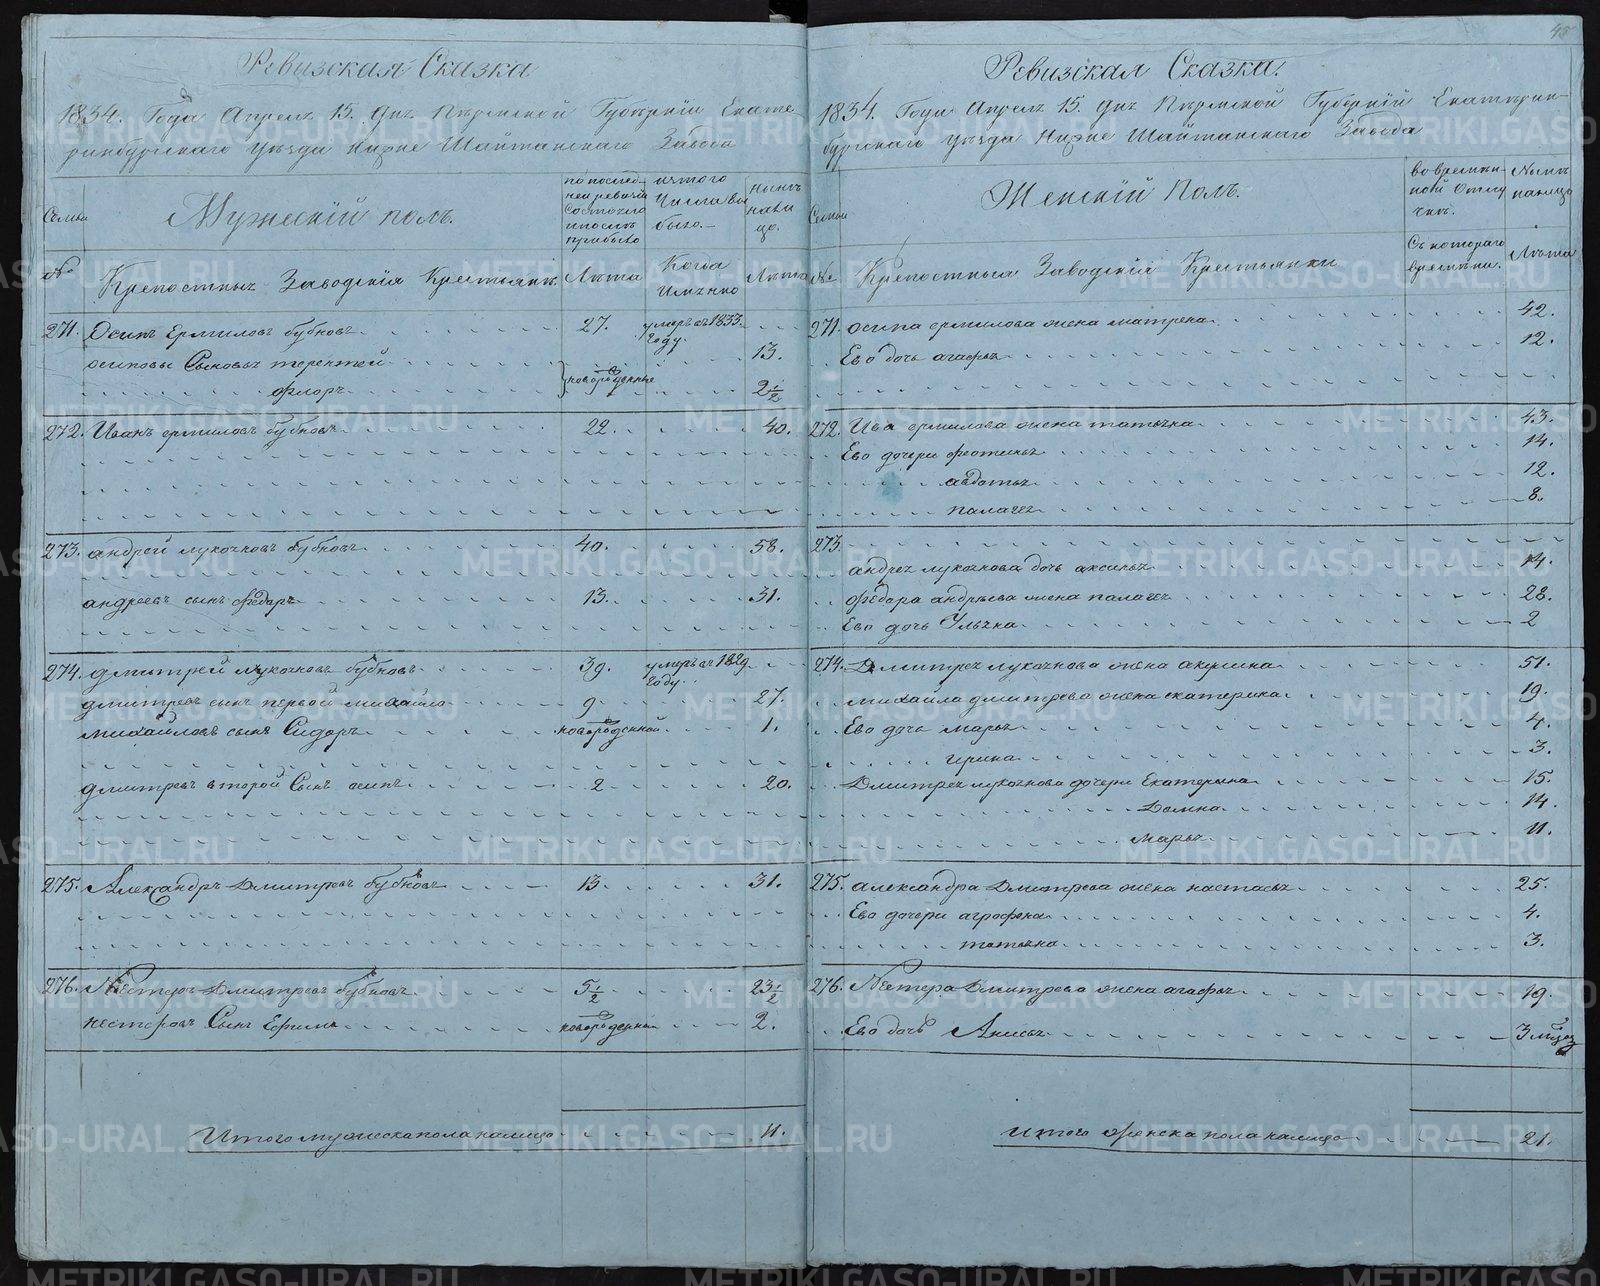 Ревизская Сказка
1834. Года Апреля 15. дня Пермской Губернiи Екате
ринбургскаго уѣзда Нижне Шайтанскаго Завода
Семьи
Мужескiй полъ.
по послед-
ней ревизiи
состояло
и послѣ
прибыло
изтого
числа вы
было.
Нынѣ
нали
цо.
№
Крепостныя Заводскiя Крестьяне.
Лѣта
Когда
имянно
Лѣта
271. Осипъ Ермиловъ бубновъ 27. умеръ въ 1833. году.
осиповы сыновья терентей 13.
новорожденные
флоръ 2½
272. Иванъ ермиловъ бубновъ 22. 40.
273. андрей лукояновъ бубновъ 40. 58.
андреевъ сынъ федоръ 13. 31.
274. дмитрей лукояновъ бубновъ 39. умеръ въ 1829 году.
дмитревъ сынъ первой михайло 9. 27.
михайловъ сынъ Сидоръ новорожденной 1.
дмитревъ второй сынъ осипъ 2 20.
275. Александръ Дмитревъ бубновъ 13. 31.
276. Нестеръ Дмитревъ бубновъ 5½ 23½
нестеровъ Сынъ Ефимъ новорожденной 2.
Итого мужеска пола налицо 11.
48
Ревизская Сказка.
1834. Года Апреля 15. дня Пермской Губернiй Екатерин-
бургскаго уѣзда Нижне Шайтанскаго Завода
Семьи
Женскiй Полъ.
во времян-
ной отлу
чке.
Нынѣ
налицо
№
Крепостныя Заводскiя Крестьянки
Съ котораго
времяни.
Лѣта
271. осипа ермилова жена матрена 42.
Ево дочь агафья 12.
272. Ива ермилова жена татьяна 43.
Ево дочери фотинья 14.
авдотья 12.
палагея 8.
273.
андрея лукоянова дочь аксинья 14.
федора андрѣева жена палагея 28.
Ево дочь Ульяна 2
274. Дмитрея лукоянова жена акулина 51.
михайла дмитрева жена екатерина 19.
Ево дочь марья 4.
ирина 3.
Дмитрея лукоянова дочери Екатерина 15.
Домна 14.
марья 11.
275. александра Дмитрева жена настасья 25.
Ево дочери аграфена 4.
татьяна 3.
276. Нестера Дмитрева жена агафья 19.
Ево дочь Анисья 3 мѣся
Итого женска пола налицо 21.
METRIKI.GASO-URAL.RU